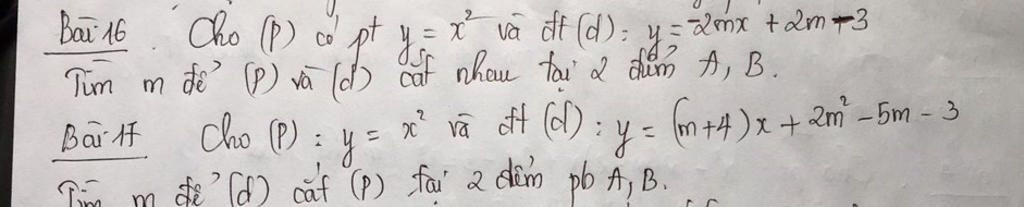 Bài 16. Cho (P) có pt y = x² và đt (d): y = -2mx + 2m - 3
Tìm m để (P) và (d) cắt nhau tại 2 điểm A, B.
Bài 17 Cho (P): y = x² và đt (d): y = (m+4)x + 2m² - 5m - 3
Tìm m để (d) cắt (P) tại 2 điểm pb A, B.